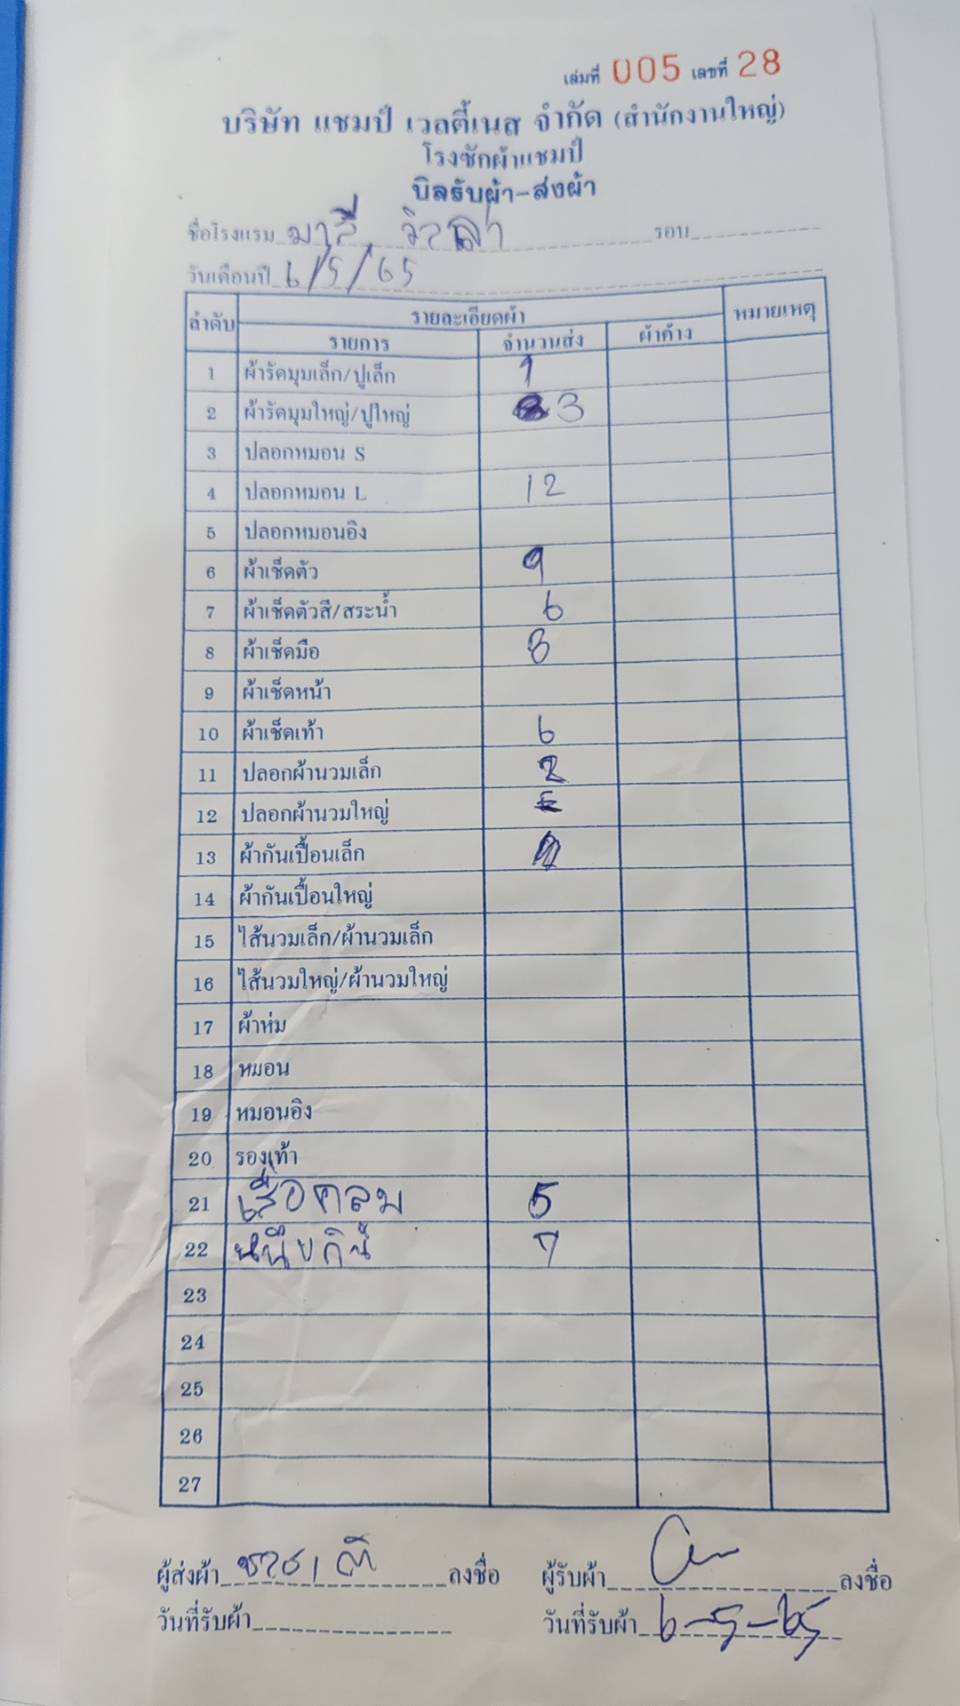 เล่มที่ 005 เลขที่ 28
บริษัท แชมป์ เวลตี้เนส จำกัด (สำนักงานใหญ่)
โรงซักผ้าแชมป์
บิลรับผ้า-ส่งผ้า
ชื่อโรงแรม มาลี วิลล่า รอบ
วันเดือนปี 6/5/65
ลำดับ รายละเอียดผ้า หมายเหตุ
รายการ จำนวนส่ง ผ้าค้าง
1 ผ้ารัดมุมเล็ก/ปูเล็ก 1
2 ผ้ารัดมุมใหญ่/ปูใหญ่ 3
3 ปลอกหมอน S
4 ปลอกหมอน L 12
5 ปลอกหมอนอิง
6 ผ้าเช็ดตัว 9
7 ผ้าเช็ดตัวสี/สระน้ำ 6
8 ผ้าเช็ดมือ 8
9 ผ้าเช็ดหน้า
10 ผ้าเช็ดเท้า 6
11 ปลอกผ้านวมเล็ก 2
12 ปลอกผ้านวมใหญ่
13 ผ้ากันเปื้อนเล็ก
14 ผ้ากันเปื้อนใหญ่
15 ไส้นวมเล็ก/ผ้านวมเล็ก
16 ไส้นวมใหญ่/ผ้านวมใหญ่
17 ผ้าห่ม
18 หมอน
19 หมอนอิง
20 รองเท้า
21 เสื้อคลุม 5
22 7
23
24
25
26
27
ผู้ส่งผ้า ลงชื่อ ผู้รับผ้า ลงชื่อ
วันที่รับผ้า วันที่รับผ้า 6-5-65